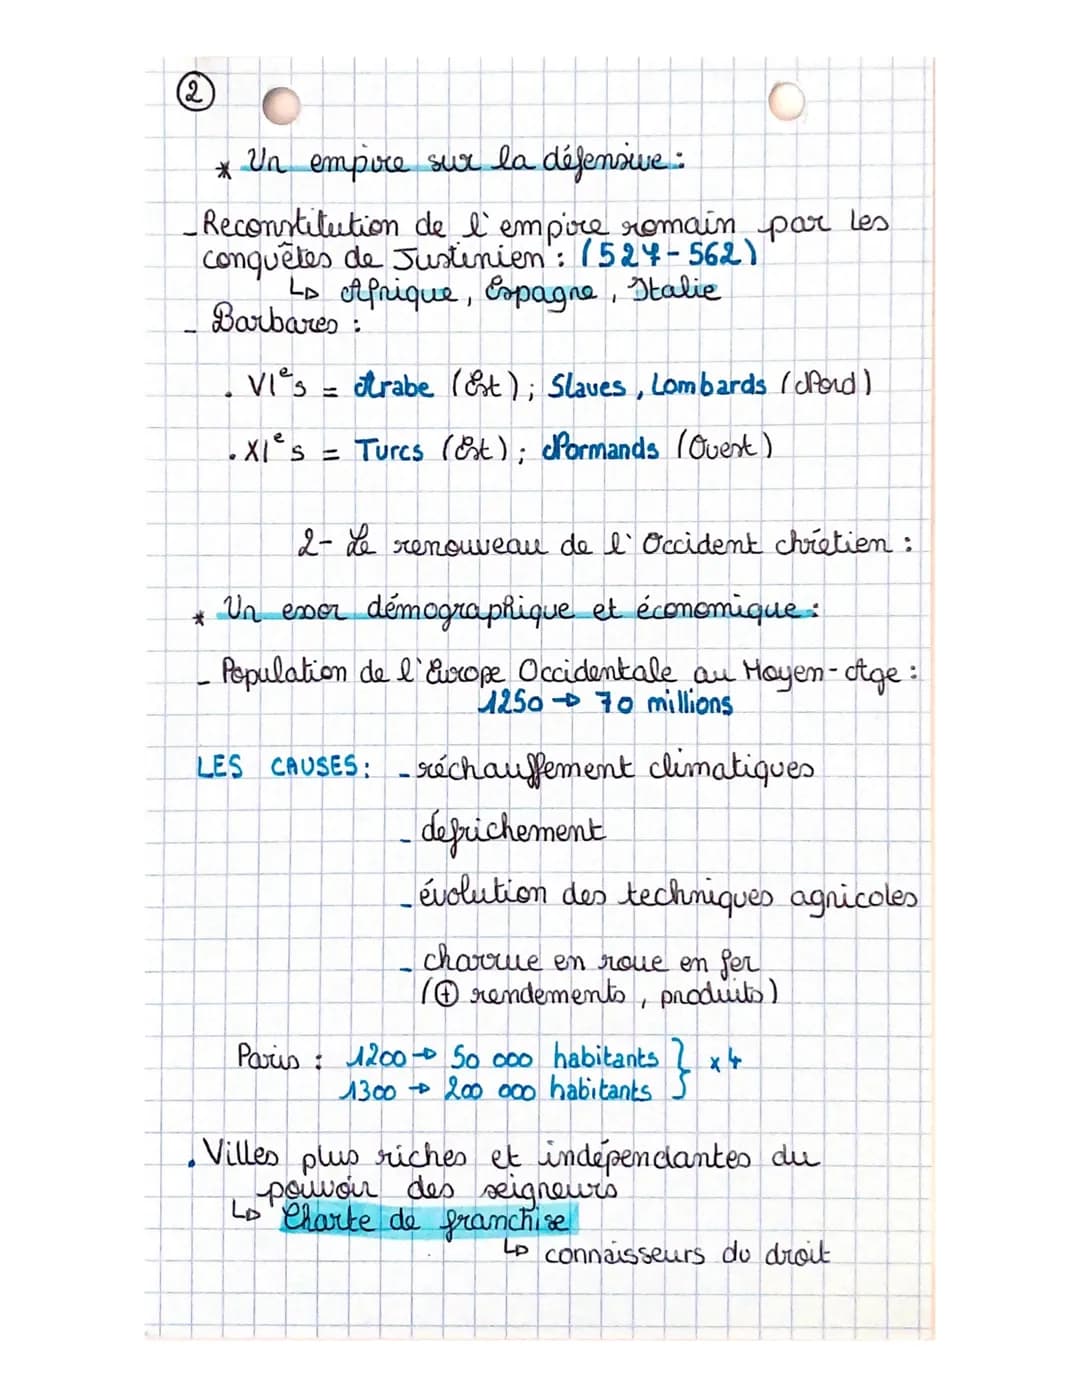 2
* Un empire sur la défensive :
- Reconstitution de l'empire romain par les
conquêtes de Justinien : (527-562)
↳ Afrique, Espagne, Italie
- Barbares :
. VIᵉs = Arabe (Est) ; Slaves, Lombards (Nord)
. XIᵉs = Turcs (Est) ; Normands (Ouest)
2- Le renouveau de l'Occident chrétien :
* Un essor démographique et économique :
- Population de l'Europe Occidentale au Moyen-Age :
1250 → 70 millions
LES CAUSES : - réchauffement climatiques
- défrichement
- évolution des techniques agricoles
- charrue en roue en fer
(⊕ rendements, produits)
Paris : 1200 → 50 000 habitants } x 4
1300 → 200 000 habitants
. Villes plus riches et indépendantes du
pouvoir des seigneurs
↳ Charte de franchise
↳ connaisseurs du droit